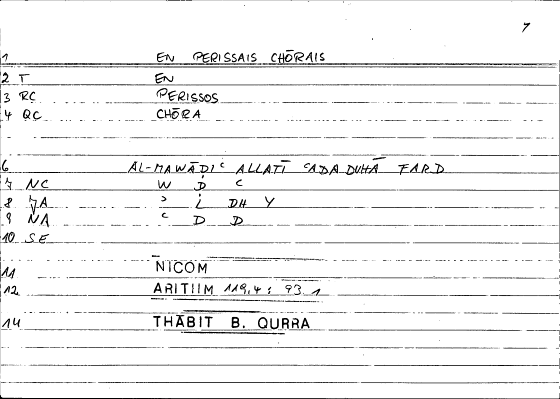 7
1 EN PERISSAIS CHŌRAIS
2 T EN
3 RC PERISSOS
4 QC CHŌRA
6 AL-MAWĀḌIʿ ALLATĪ ʿADADUHĀ FARD
7 NC W Ḍ ʿ
8 JA ʾ L DH Y
9 NA ʿ D D
10 SE
11 NICOM
12 ARITIIM 119,4 : 93 1
14 THĀBIT B. QURRA